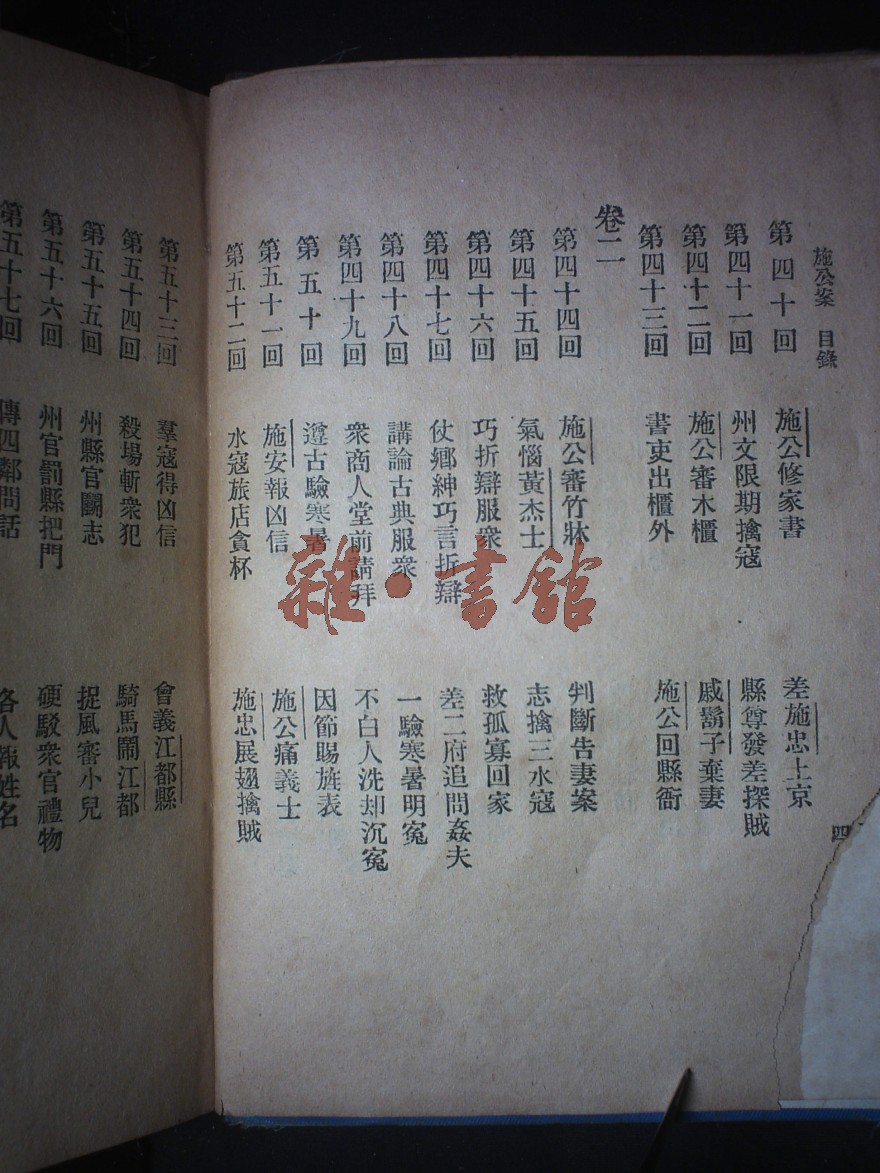 施公案　目錄
四
第四十回　施公修家書　差施忠上京
第四十一回　州文限期擒寇　縣尊發差探賊
第四十二回　施公審木櫃　戚鬍子棄妻
第四十三回　書吏出櫃外　施公回縣衙
卷二
第四十四回　施公審竹牀　判斷告妻案
第四十五回　氣惱黃杰士　志擒三水寇
第四十六回　巧折辯服衆　救孤寡回家
第四十七回　仗鄉紳巧言折辯　差二府追問姦夫
第四十八回　講論古典服衆　一驗寒暑明冤
第四十九回　衆商人堂前請拜　不白人洗却沉冤
第五十回　遵古驗寒暑　因節賜旌表
第五十一回　施安報凶信　施公痛義士
第五十二回　水寇旅店貪杯　施忠展翅擒賊
第五十三回　羣寇得凶信　會義江都縣
第五十四回　殺場斬衆犯　騎馬鬧江都
第五十五回　州縣官鬭志　捉風審小兒
第五十六回　州官罰縣把門　硬駁衆官禮物
第五十七回　傳四鄰問話　各人報姓名
雜·書館